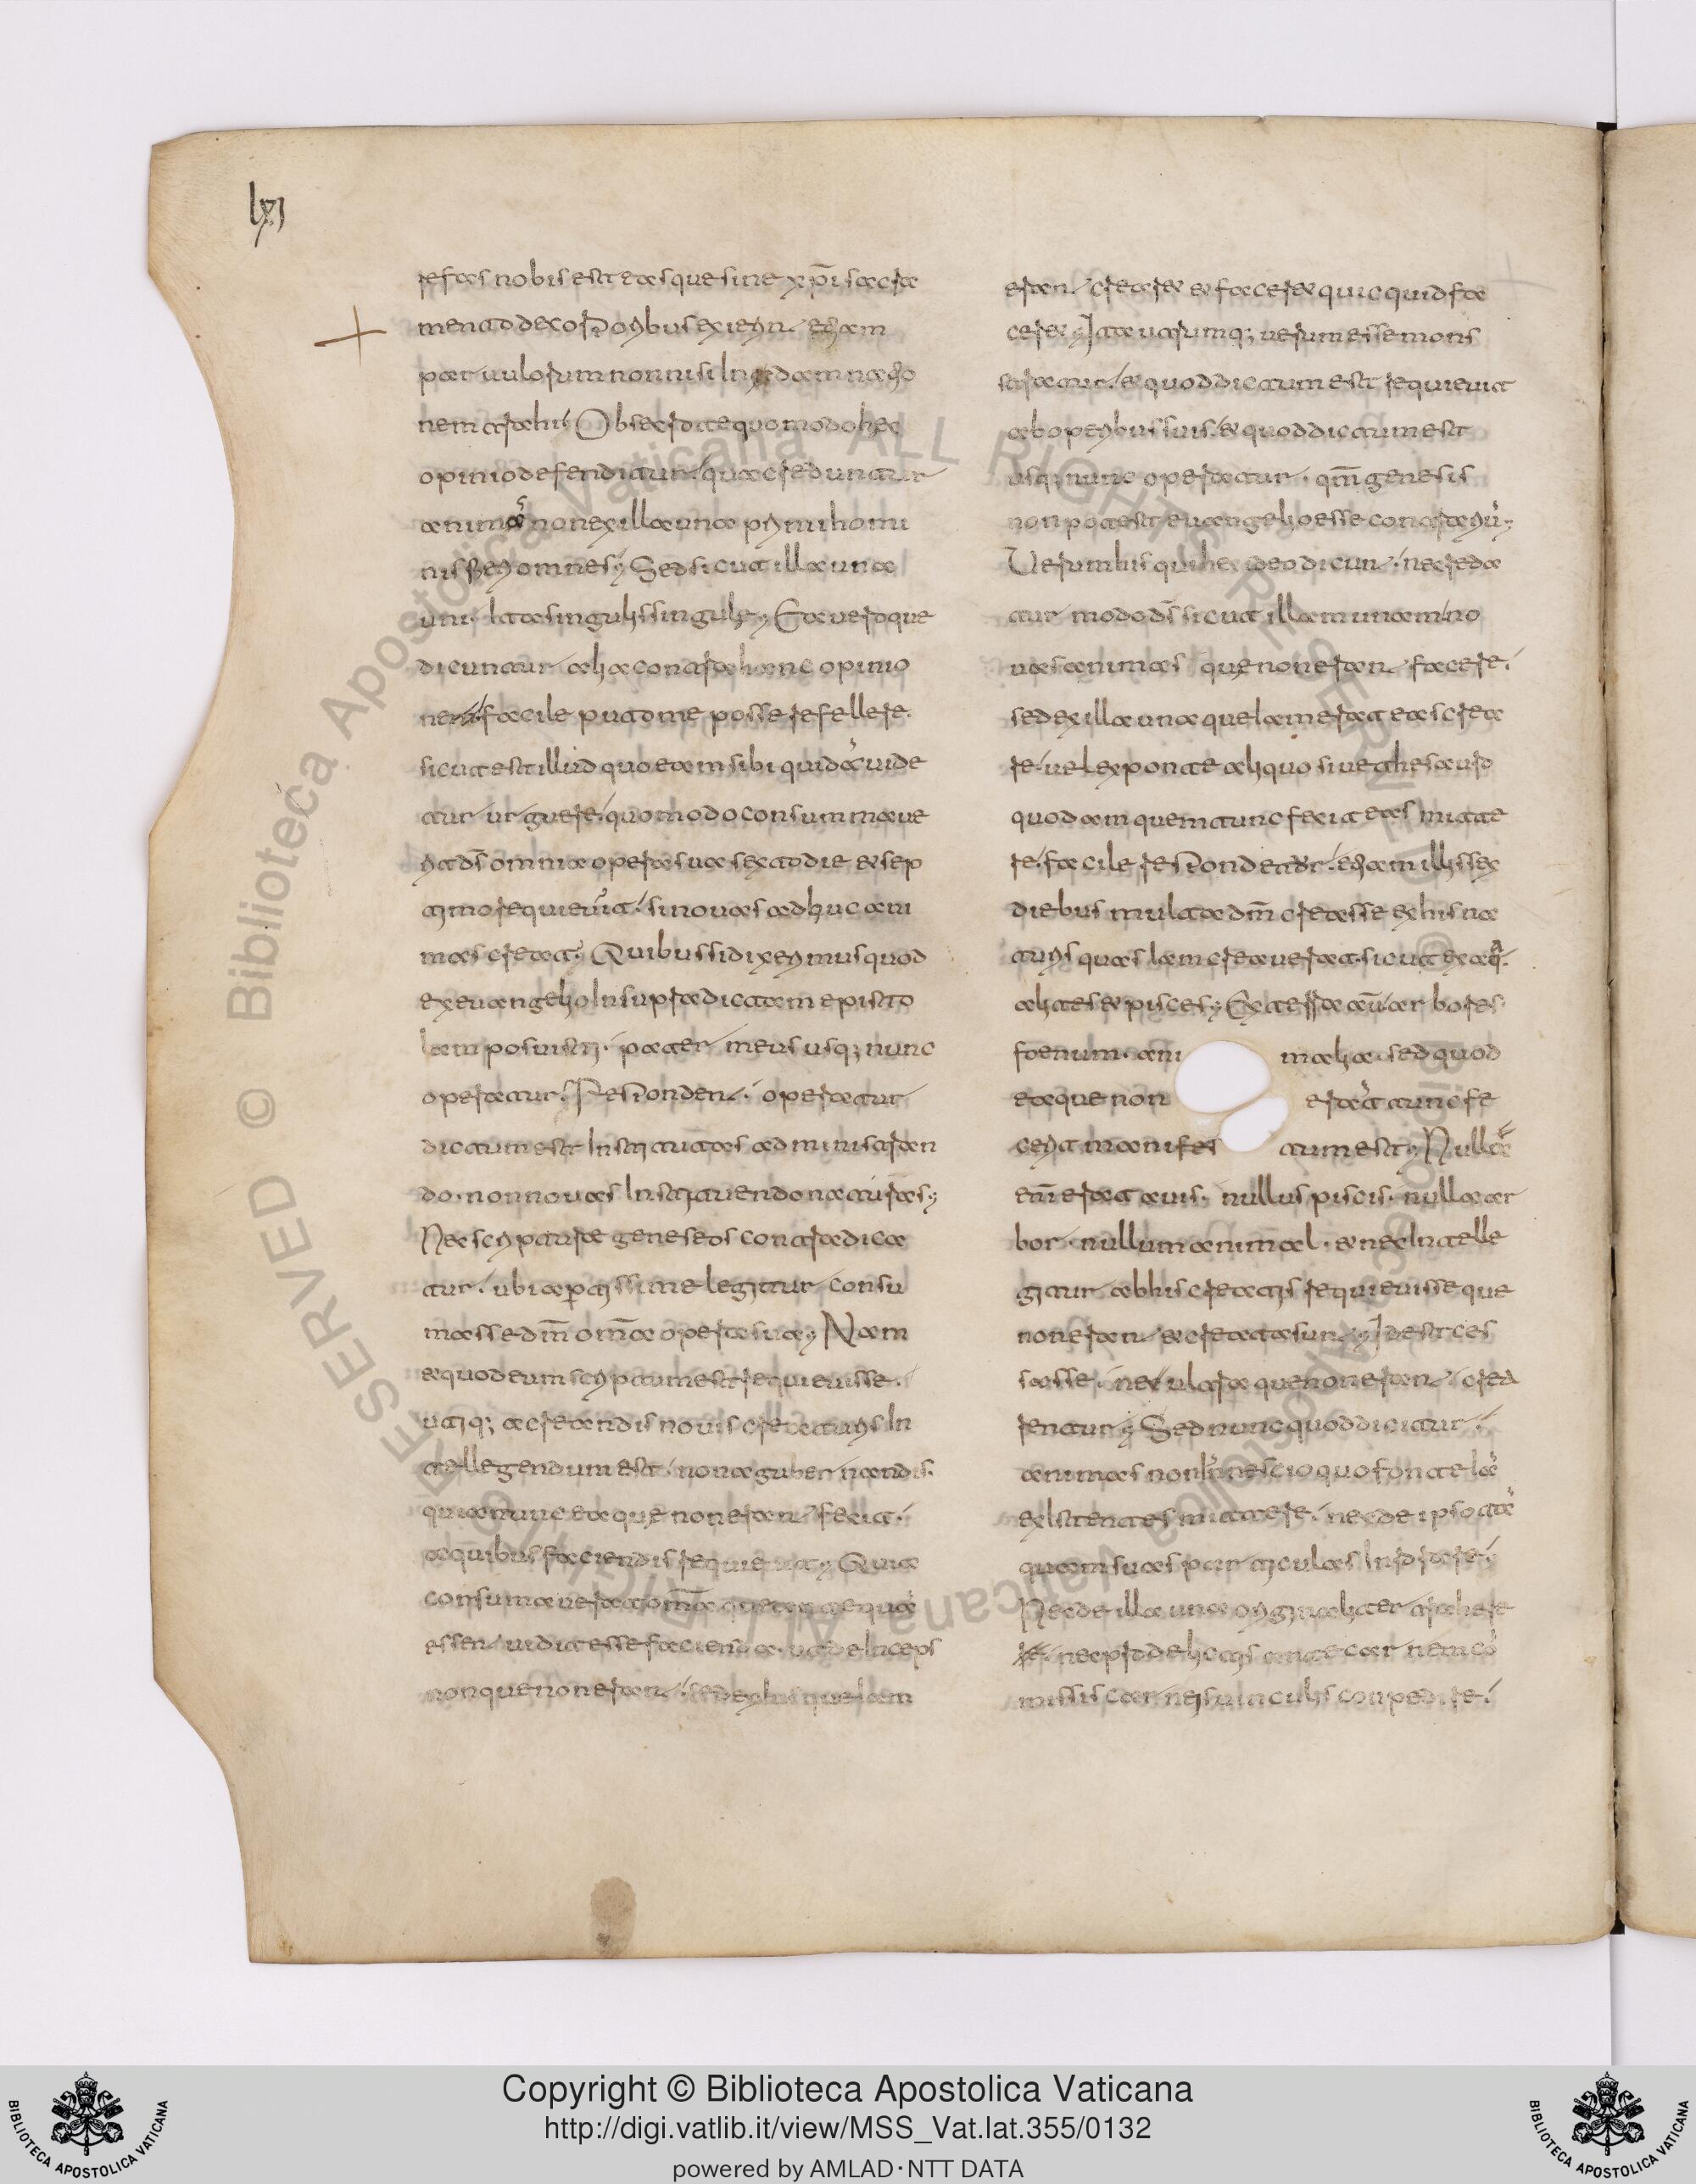 lxi
ref͞as nobis est eas que sine xp̄i sacra
mento de corporibus exierint etiam
parvulorum non nisi in damnatio
nem trahi. Obsecro te quomodo hec
opinio defenditur. qua creduntur
animas non ex illa una primi homi
nis fieri omnes. Sed sicut illa una
uni. ita singulis singule. Ea vero que
dicuntur alia contra hanc opinio
nem facile puto me posse refellere.
sicut est illud quo eam sibi quidam vide
tur urguere. quomodo consummave
rit ds̄ omnia opera sua sexto die & sep
timo requieverit. si novas adhuc ani
mas creat. Quibus si dixerimus quod
ex evangelio in supra dicta episto
lam posuisti. pater meus usq; nunc
operatur. Respondent. operatur
dictum est institutas administran
do. non novas instituendo naturas.
Nec scripture geneseos contradica
tur. ubi apertissime legitur consu
masse dm̄ om̄a opera sua. Nam
& quod eum scriptum est requievisse.
utiq; a creandis novis creaturis in
tellegendum est. non a gubernandis.
quia tunc ea que non erant fecit.
a quibus faciendis requievit. Quia
consumaverat om̄a que antequā
essent vidit esse facienda. ut deinceps
non que non erant. sed ex his que iam
erant crearet & faceret quicquid fa
ceret. Ita utrumq; verum esse mons
tratur. & quod dictum est requievit
ab operibus suis. & quod dictum est
usq; nunc operatur. qm̄ genesis
non potest evangelio esse contrariū.
Verum his qui hec ideo dicunt. ne creda
tur modo ds̄ sicut illam unam no
vas animas que non erant facere.
sed ex illa una que iam erat eas crea
re. vel ex fonte aliquo sive thesauro
quodam quem tunc fecit eas mitte
re. facile respondetur. etiam illis sex
diebus multa dm̄ creasse ex his na
turis quas iam creaverat. sicut ex aq̄
alites & pisces. Ex terra aū arbores
foenum. animalia. sed quod
ea que non erant tunc fe
cerit manifestum est. Nulla
em̄ erat avis. nullus piscis. nulla ar
bor. nullum animal. & bene intelle
gitur ab his creatis requievisse que
non erant & creata sunt. Id est ces
sasse. ne ultra que non erant crea
rentur. Sed nunc quod dicitur.
animas non in nescio quo fonte iā
existentes mittere. nec de ipso tā
quam suas particulas inrorare.
Nec de illa una originaliter trahere
nec pro delictis ante carnem cō
missis carneis vinculis conpedire.
Copyright © Biblioteca Apostolica Vaticana
http://digi.vatlib.it/view/MSS_Vat.lat.355/0132
powered by AMLAD·NTT DATA